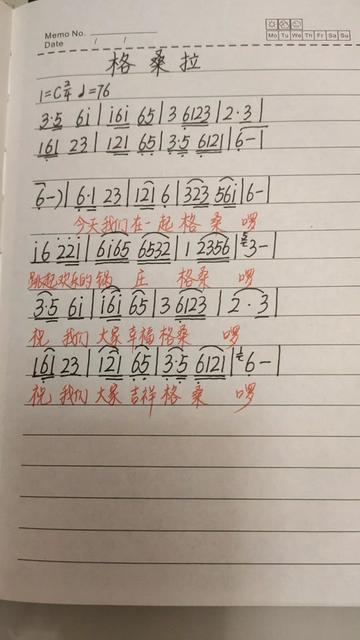 Memo No.
Date / /
Mo Tu We Th Fr Sa Su
格桑拉
1=C 2/4 ♩=76
3·5 6i | i6i 65 | 3 6123 | 2·3 |
161 23 | 121 65 | 3·5 6121 | 6- |
6-) | 6·1 23 | 121 6 | 323 56i | 6- |
今天我们在一起 格桑 啰
i6 22i | 6i65 6532 | 1 2356 | 3- |
跳起欢乐的锅 庄 格桑 啰
3·5 6i | i6i 65 | 3 6123 | 2·3 |
祝 我们 大家 幸福 格桑 啰
161 23 | 121 65 | 3·5 6121 | 6- |
祝 我们 大家 吉祥 格 桑 啰